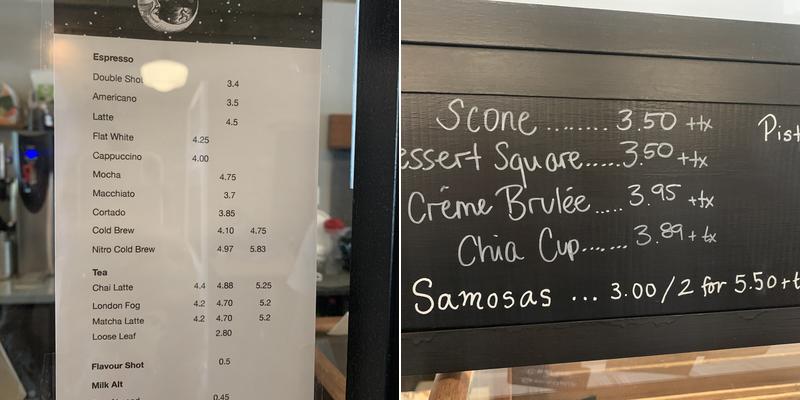 Espresso
Double Shot 3.4
Americano 3.5
Latte 4.5
Flat White 4.25
Cappuccino 4.00
Mocha 4.75
Macchiato 3.7
Cortado 3.85
Cold Brew 4.10 4.75
Nitro Cold Brew 4.97 5.83
Tea
Chai Latte 4.4 4.88 5.25
London Fog 4.2 4.70 5.2
Matcha Latte 4.2 4.70 5.2
Loose Leaf 2.80
Flavour Shot 0.5
Milk Alt
0.45
Scone ......... 3.50 +tx
essert Square......3.50 +tx
Crème Brulée ..... 3.95 +tx
Chia Cup....... 3.89 + tx
Samosas ... 3.00 / 2 for 5.50 + t
Pist